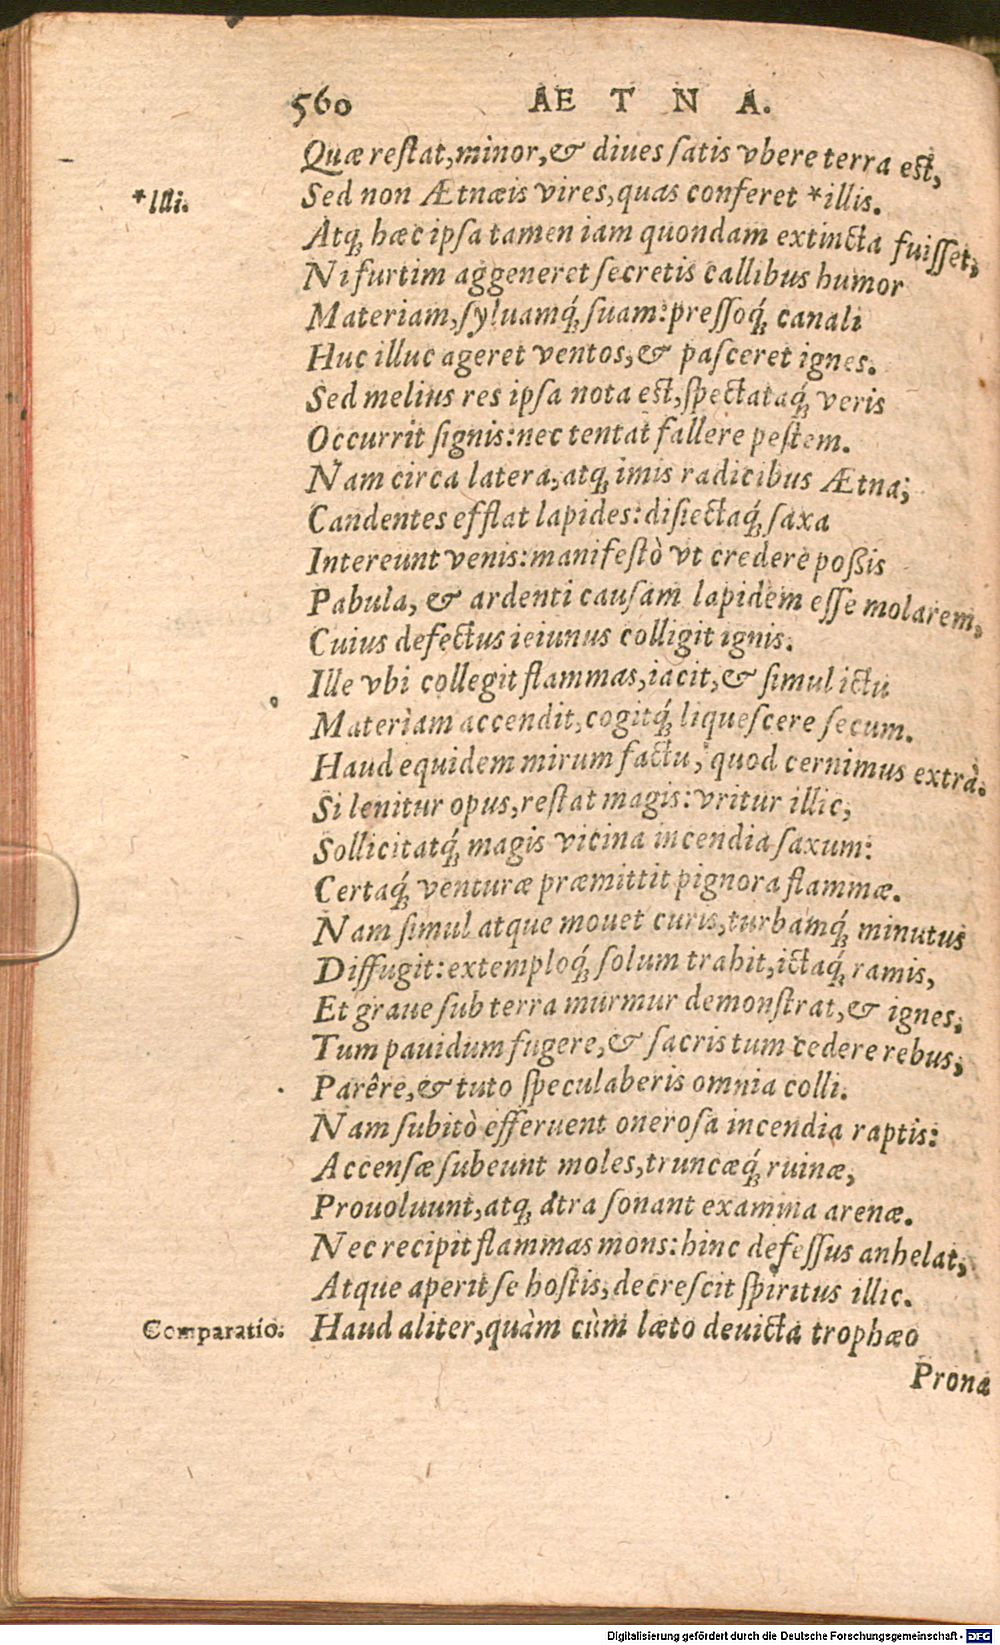 560 AETNA.
Quæ restat, minor, & diues satis vbere terra est,
*Illi.
Sed non Ætnæis vires, quas conferet *illis.
Atq; hæc ipsa tamen iam quondam extincta fuisset,
Ni furtim aggeneret secretis callibus humor
Materiam, syluamq́; suam: pressoq́; canali
Huc illuc ageret ventos, & pasceret ignes.
Sed melius res ipsa nota est, spectataq́; veris
Occurrit signis: nec tentat fallere pestem.
Nam circa latera, atq; imis radicibus Ætna;
Candentes efflat lapides: disiectaq́; saxa
Intereunt venis: manifestò vt credere possis
Pabula, & ardenti causam lapidem esse molarem,
Cuius defectus ieiunus colligit ignis.
Ille vbi collegit flammas, iacit, & simul ictu
Materiam accendit, cogitq́; liquescere secum.
Haud equidem mirum factu, quod cernimus extrà.
Si lenitur opus, restat magis: vritur illic,
Sollicitatq́; magis vicina incendia saxum:
Certaq́; venturæ præmittit pignora flammæ.
Nam simul atque mouet curis, turbamq́; minutus
Diffugit: extemploq́; solum trahit, ictaq́; ramis,
Et graue sub terra murmur demonstrat, & ignes;
Tum pauidum fugere, & sacris tum cedere rebus;
Parêre, & tuto speculaberis omnia colli.
Nam subitò efferuent onerosa incendia raptis:
Accensæ subeunt moles, truncæq́; ruinæ,
Prouoluunt, atq; atra sonant examina arenæ.
Nec recipit flammas mons: hinc defessus anhelat,
Atque aperit se hostis, decrescit spiritus illic.
Comparatio.
Haud aliter, quàm cùm læto deuicta trophæo
Pronæ
Digitalisierung gefördert durch die Deutsche Forschungsgemeinschaft - DFG